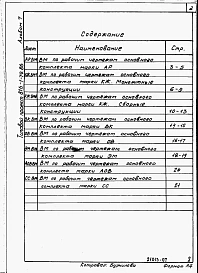 2
Альбом 7
Содержание
Лист Наименование Стр.
ВМ по рабочим чертежам основного
комплекта марки АР 3-5
ВМ по рабочим чертежам основного
комплекта марки КЖ. Монолитные
конструкции 6-9
ВМ по рабочим чертежам основного
комплекта марки КЖ. Сборные
конструкции 10-13
ВМ по рабочим чертежам основного
комплекта марки ВК 14-15
ВМ по рабочим чертежам основного
комплекта марки ОВ 16-17
ВМ по рабочим чертежам основного
комплекта марки ЭМ 18-19
ВМ по рабочим чертежам основного
комплекта марки АОВ 20
ВМ по рабочим чертежам основного
комплекта марки СС 21
21015-07 2
Копировал: Формат А4